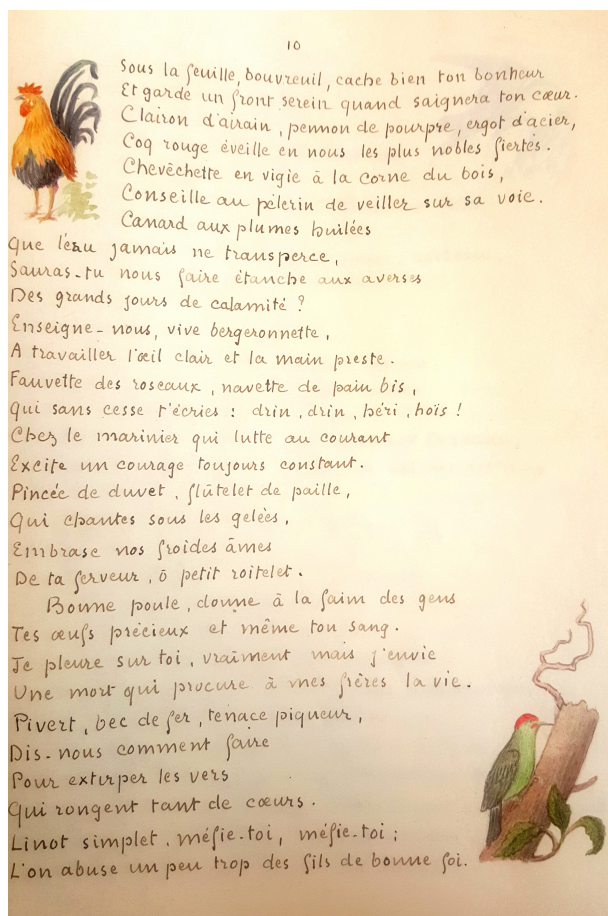 10
Sous la feuille, bouvreuil, cache bien ton bonheur
Et garde un front serein quand saignera ton cœur.
Clairon d'airain, pennon de pourpre, ergot d'acier,
Coq rouge éveille en nous les plus nobles fiertés.
Chevêchette en vigie à la corne du bois,
Conseille au pèlerin de veiller sur sa voie.
Canard aux plumes huilées
Que l'eau jamais ne transperce,
Sauras-tu nous faire étanche aux averses
Des grands jours de calamité ?
Enseigne-nous, vive bergeronnette,
A travailler l'œil clair et la main preste.
Fauvette des roseaux, navette de pain bis,
Qui sans cesse t'écries : drin, drin, héri, hoïs !
Chez le marinier qui lutte au courant
Excite un courage toujours constant.
Pincée de duvet, flûtelet de paille,
Qui chantes sous les gelées,
Embrase nos froides âmes
De ta ferveur, ô petit roitelet.
Bonne poule, donne à la faim des gens
Tes œufs précieux et même ton sang.
Je pleure sur toi, vraiment mais j'envie
Une mort qui procure à mes frères la vie.
Pivert, bec de fer, tenace piqueur,
Dis-nous comment faire
Pour extirper les vers
Qui rongent tant de cœurs.
Linot simplet, méfie-toi, méfie-toi ;
L'on abuse un peu trop des fils de bonne foi.